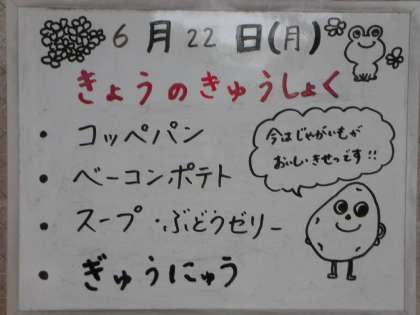 6月22日(月)
きょうのきゅうしょく
• コッペパン
• ベーコンポテト
• スープ・ぶどうゼリー
• ぎゅうにゅう
今はじゃがいもが
おいしいきせつです!!